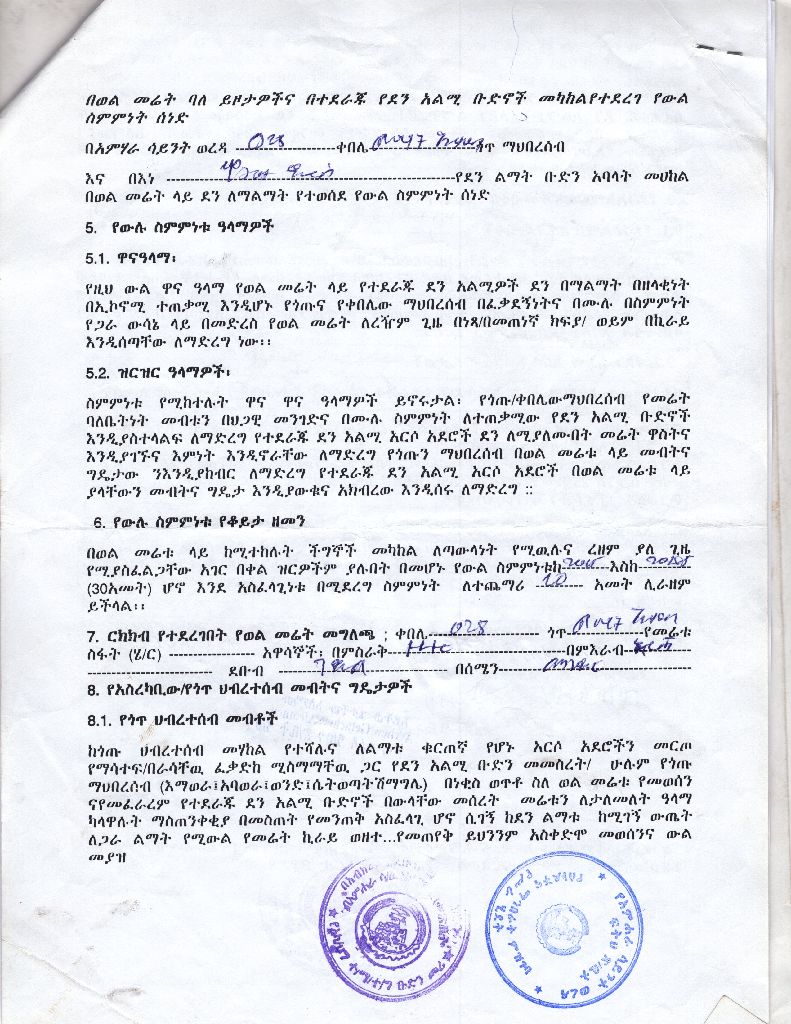 በወል መሬት ባለ ይዞታዎችና በተደራጁ የደን አልሚ ቡድኖች መካከልየተደረገ የውል
ስምምነት ሰነድ
በአምሃራ ሳይንት ወረዳ 028 ቀበሌ ጎጥ ማህበረሰብ
እና በእነ የደን ልማት ቡድን አባላት መሀከል
በወል መሬት ላይ ደን ለማልማት የተወሰደ የውል ስምምነት ሰነድ
5. የውሉ ስምምነቱ ዓላማዎች
5.1. ዋናዓላማ፡
የዚህ ውል ዋና ዓላማ የወል መሬት ላይ የተደራጁ ደን አልሚዎች ደን በማልማት በዘላቂነት
በኢኮኖሚ ተጠቃሚ እንዲሆኑ የጎጡና የቀበሌው ማህበረሰብ በፈቃደኝነትና በሙሉ በስምምነት
የጋራ ውሳኔ ላይ በመድረስ የወል መሬት ለረዥም ጊዜ በነጻ/በመጠነኛ ክፍያ/ ወይም በኪራይ
እንዲሰጣቸው ለማድረግ ነው፡፡
5.2. ዝርዝር ዓላማዎች፡
ስምምነቱ የሚከተሉት ዋና ዋና ዓላማዎች ይኖሩታል፡ የጎጡ/ቀበሌውማህበረሰብ የመሬት
ባለቤትነት መብቱን በህጋዊ መንገድና በሙሉ ስምምነት ለተጠቃሚው የደን አልሚ ቡድኖች
እንዲያስተላልፍ ለማድረግ የተደራጁ ደን አልሚ አርሶ አደሮች ደን ለሚያለሙበት መሬት ዋስትና
እንዲያገኙና እምነት እንዲኖራቸው ለማድረግ የጎጡን ማህበረሰብ በወል መሬቱ ላይ መብትና
ግዴታው ንእንዲያከብር ለማድረግ የተደራጁ ደን አልሚ አርሶ አደሮች በወል መሬቱ ላይ
ያላቸውን መብትና ግዴታ እንዲያውቁና አክብረው እንዲሰሩ ለማድረግ ::
6. የውሉ ስምምነቱ የቆይታ ዘመን
በወል መሬቱ ላይ ከሚተከሉት ችግኞች መካከል ለጣውላነት የሚዉሉና ረዘም ያለ ጊዜ
የሚያስፈልጋቸው አገር በቀል ዝርዎችም ያሉበት በመሆኑ የውል ስምምነቱከ እስከ
(30አመት) ሆኖ እንደ አስፈላጊነቱ በሚደረግ ስምምነት ለተጨማሪ 10 አመት ሊራዘም
ይችላል፡፡
7. ርክክብ የተደረገበት የወል መሬት መግለጫ ; ቀበሌ 028 ጎጥ የመሬቱ
ስፋት (ሄ/ር) አዋሳኞች፡ በምስራቅ በምእራብ
ደቡብ በሰሜን
8. የአስረካቢው/የጎጥ ህብረተሰብ መብትና ግዴታዎች
8.1. የጎጥ ህብረተሰብ መብቶች
ከጎጡ ህብረተሰብ መሃከል የተሻሉና ለልማቱ ቁርጠኛ የሆኑ አርሶ አደሮችን መርጦ
የማሳተፍ/በራሳቸዉ ፈቃድከ ሚስማማቸዉ ጋር የደን አልሚ ቡድን መመስረት/ ሁሉም የጎጡ
ማህበረሰብ (እማወራ፤አባወራ፤ወንድ፤ሴትወጣት፣ሽማግሌ) በነቂስ ወጥቶ ስለ ወል መሬቱ የመወሰን
ናየመፈራረም የተደራጁ ደን አልሚ ቡድኖች በውላቸው መሰረት መሬቱን ለታለመለት ዓላማ
ካላዋሉት ማስጠንቀቂያ በመስጠት የመንጠቅ አስፈላጊ ሆኖ ሲገኝ ከደን ልማቱ ከሚገኝ ውጤት
ለጋራ ልማት የሚውል የመሬት ኪራይ ወዘተ...የመጠየቅ ይህንንም አስቀድሞ መወሰንና ውል
መያዝ